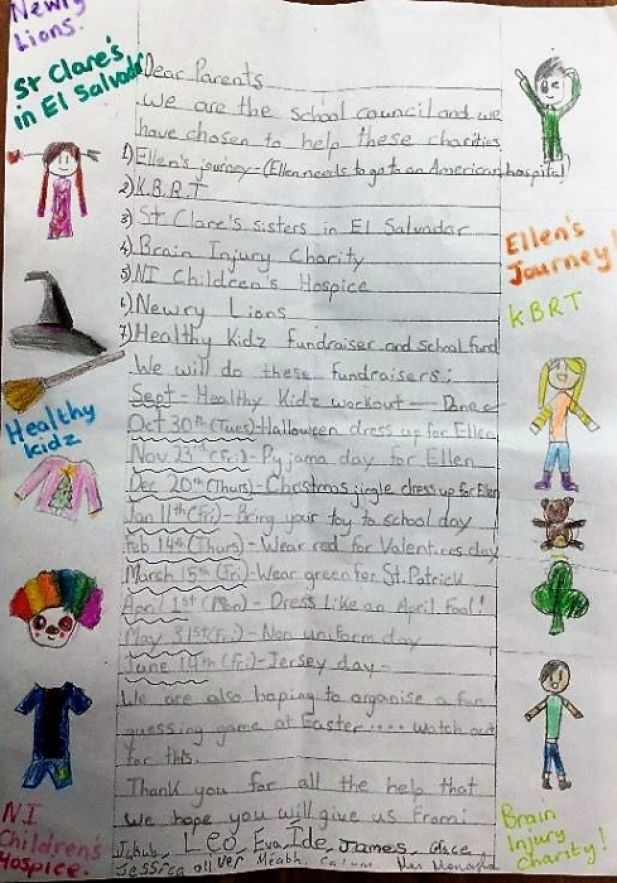 Newry
Lions.
St Clare's
in El Salvador
Dear Parents
We are the school council and we
have chosen to help these charities
1) Ellen's journey - (Ellen needs to go to an American hospital)
2) K.B.R.T
3) St Clare's sisters in El Salvador
4) Brain Injury Charity
5) NI Children's Hospice
6) Newry Lions
7) Healthy Kidz fundraiser and school fund
We will do these fundraisers:
Sept - Healthy Kidz workout — Done
Oct 30th (Tues) - Halloween dress up for Ellen
Nov 23rd (Fri) - Pyjama day for Ellen
Dec 20th (Thurs) - Christmas jingle dress up for Ellen
Jan 11th (Fri) - Bring your toy to school day
Feb 14th (Thurs) - Wear red for Valentines day
March 15th (Fri) - Wear green for St. Patrick
April 1st (Mon) - Dress like an April Fool!
May 31st (Fri) - Non uniform day
June 14th (Fri) - Jersey day
We are also hoping to organise a fun
guessing game at Easter.... watch out
for this.
Thank you for all the help that
we hope you will give us from:
Leo, Eva, Ide, James,
Jessica Oliver Méabh. Calum.
Ellen's
Journey!
KBRT
Healthy
kidz
NI
Children's
Hospice.
Brain
Injury
Charity!